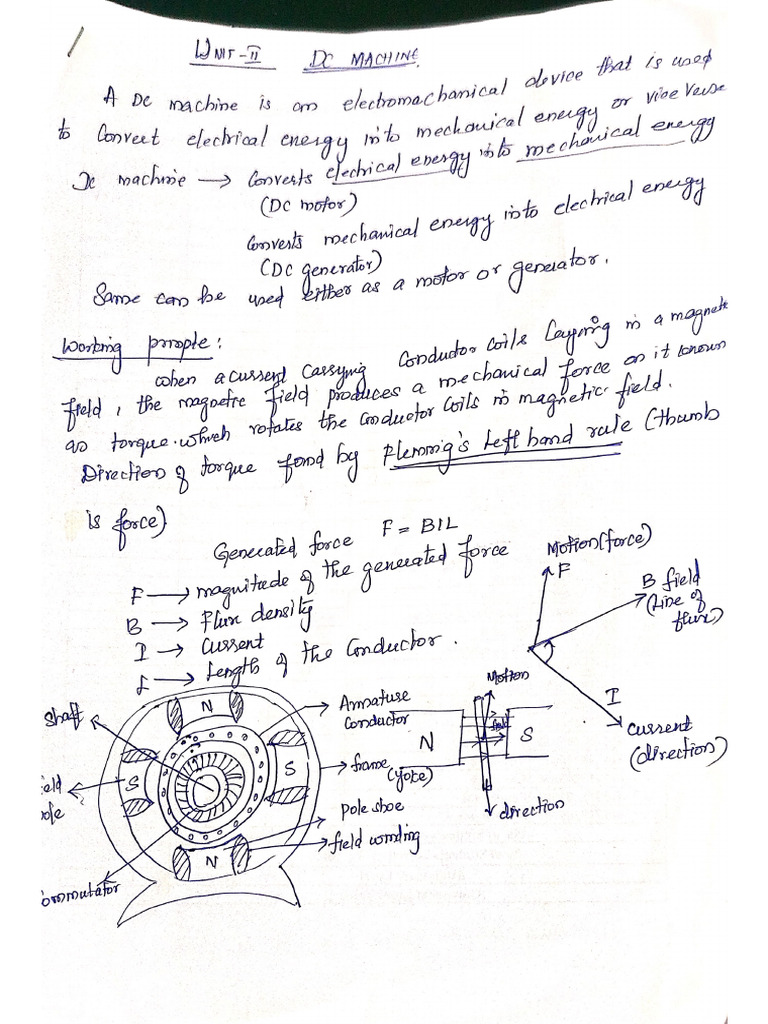 UNIT-II DC MACHINE.
A DC machine is an electromachanical device that is used
to Convert electrical energy into mechanical energy or vice Verse
DC machine → Converts electrical energy into mechanical energy
(DC motor)
Converts mechanical energy into electrical energy
(DC generator)
Same can be used either as a motor or generator.
Working prinople:
When a current Carrying Conductor coils Laying in a magnetic
field, the magnetic field produces a mechanical force on it known
as torque. which rotates the conductor coils in magnetic field.
Direction of torque fond by Flemmig's Left hand rule (thumb
is force)
Generated force F = BIL
F → magnitude of the generated force
B → Flux density
I → Current
L → Length of the Conductor.
Motion(force)
F
B field
(Line of
flux)
I
Current
(direction)
Shaft
N
Armature
Conductor
Motion
N
S
S
S
frame
(yoke)
ield
ole
direction
pole shoe
N
field winding
ommutator